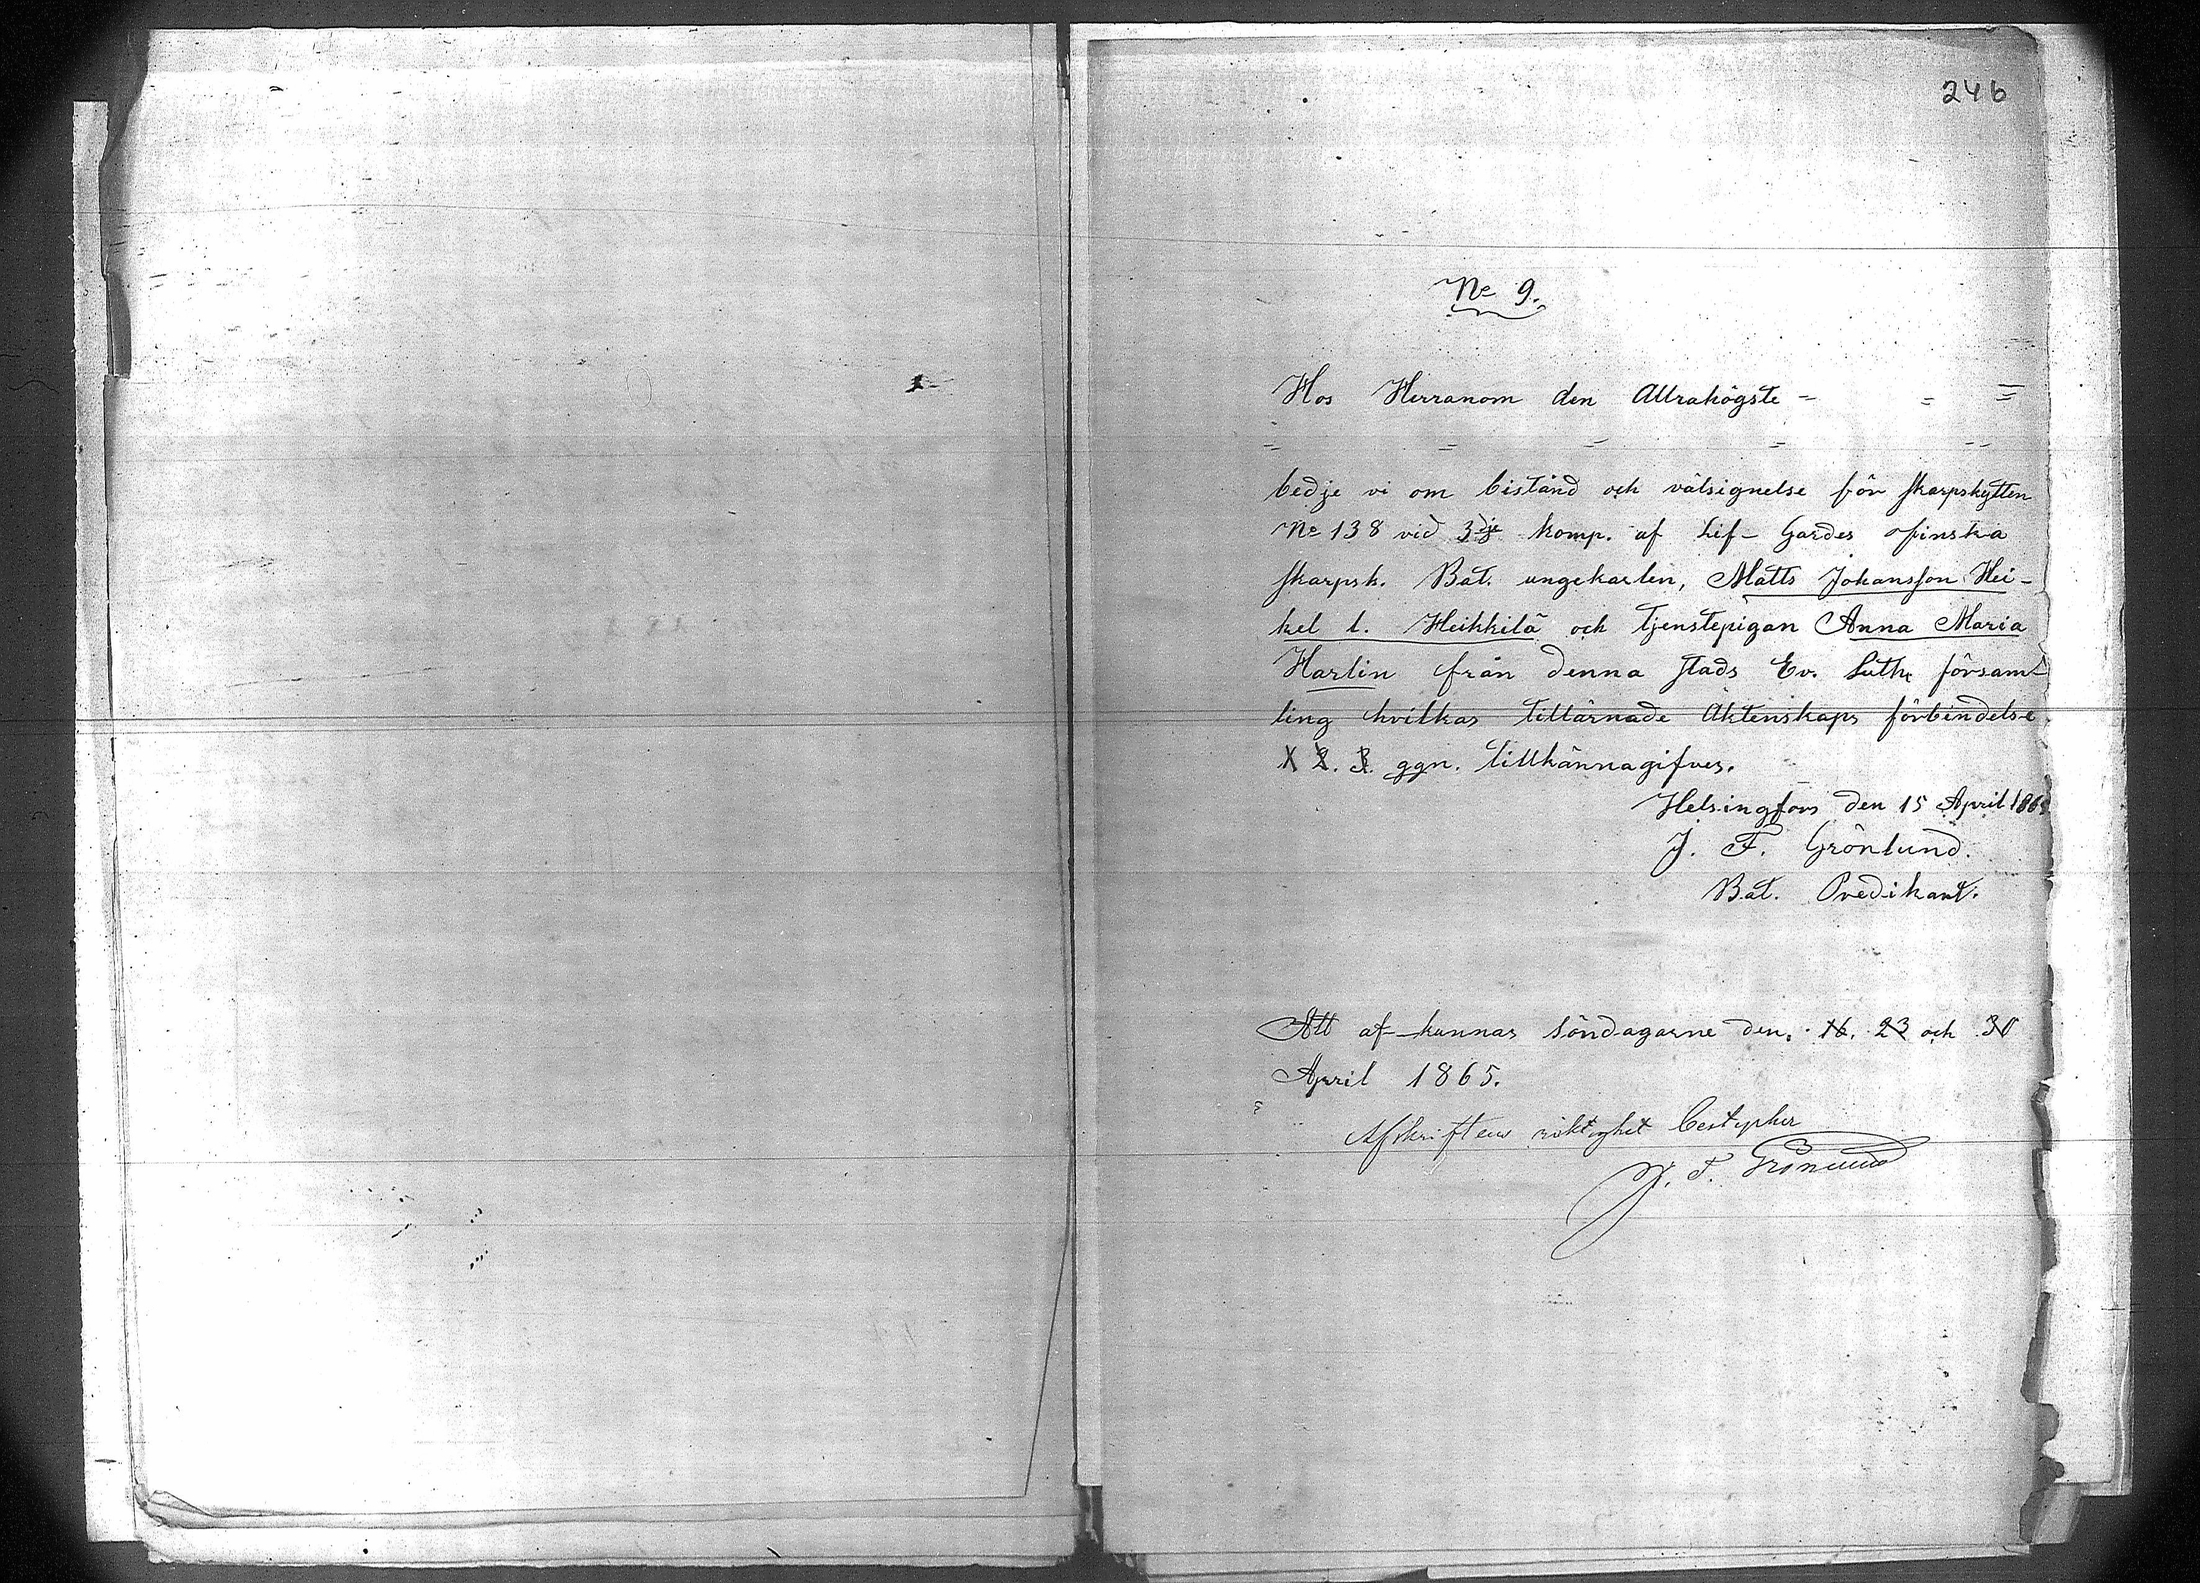 246
No 9.
Hos Herranom den Allrahögste - = =
= = = = = =
bedje vi om bistånd och välsignelse för skarpskytten
No 138 vid 3dje komp. af Lif-Gardes Finska
skarpsk. Bat. ungekarlen, Matts Johansson Hei-
kel l. Heikkilä och tjenstepigan Anna Maria
Harlin från denna stads Ev. Luth. försam-
ling hvilkas tillärnade Äktenskaps förbindelse
1 2. 3. ggn. tillkännagifves.
Helsingfors den 15 April 1865
J. F. Grönlund.
Bat. Predikant.
Att af-kunnas söndagarne den. 16. 23 och 30
April 1865.
Afskriftens riktighet bestyrker
J. F. Grönlund